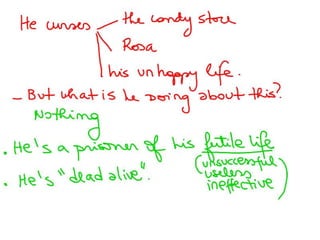 He curses the candy store
Rosa
his unhappy life.
- But what is he doing about this?
Nothing
. He's a prisoner of his futile life
(unsuccessful
useless
ineffective)
. He's "dead alive".